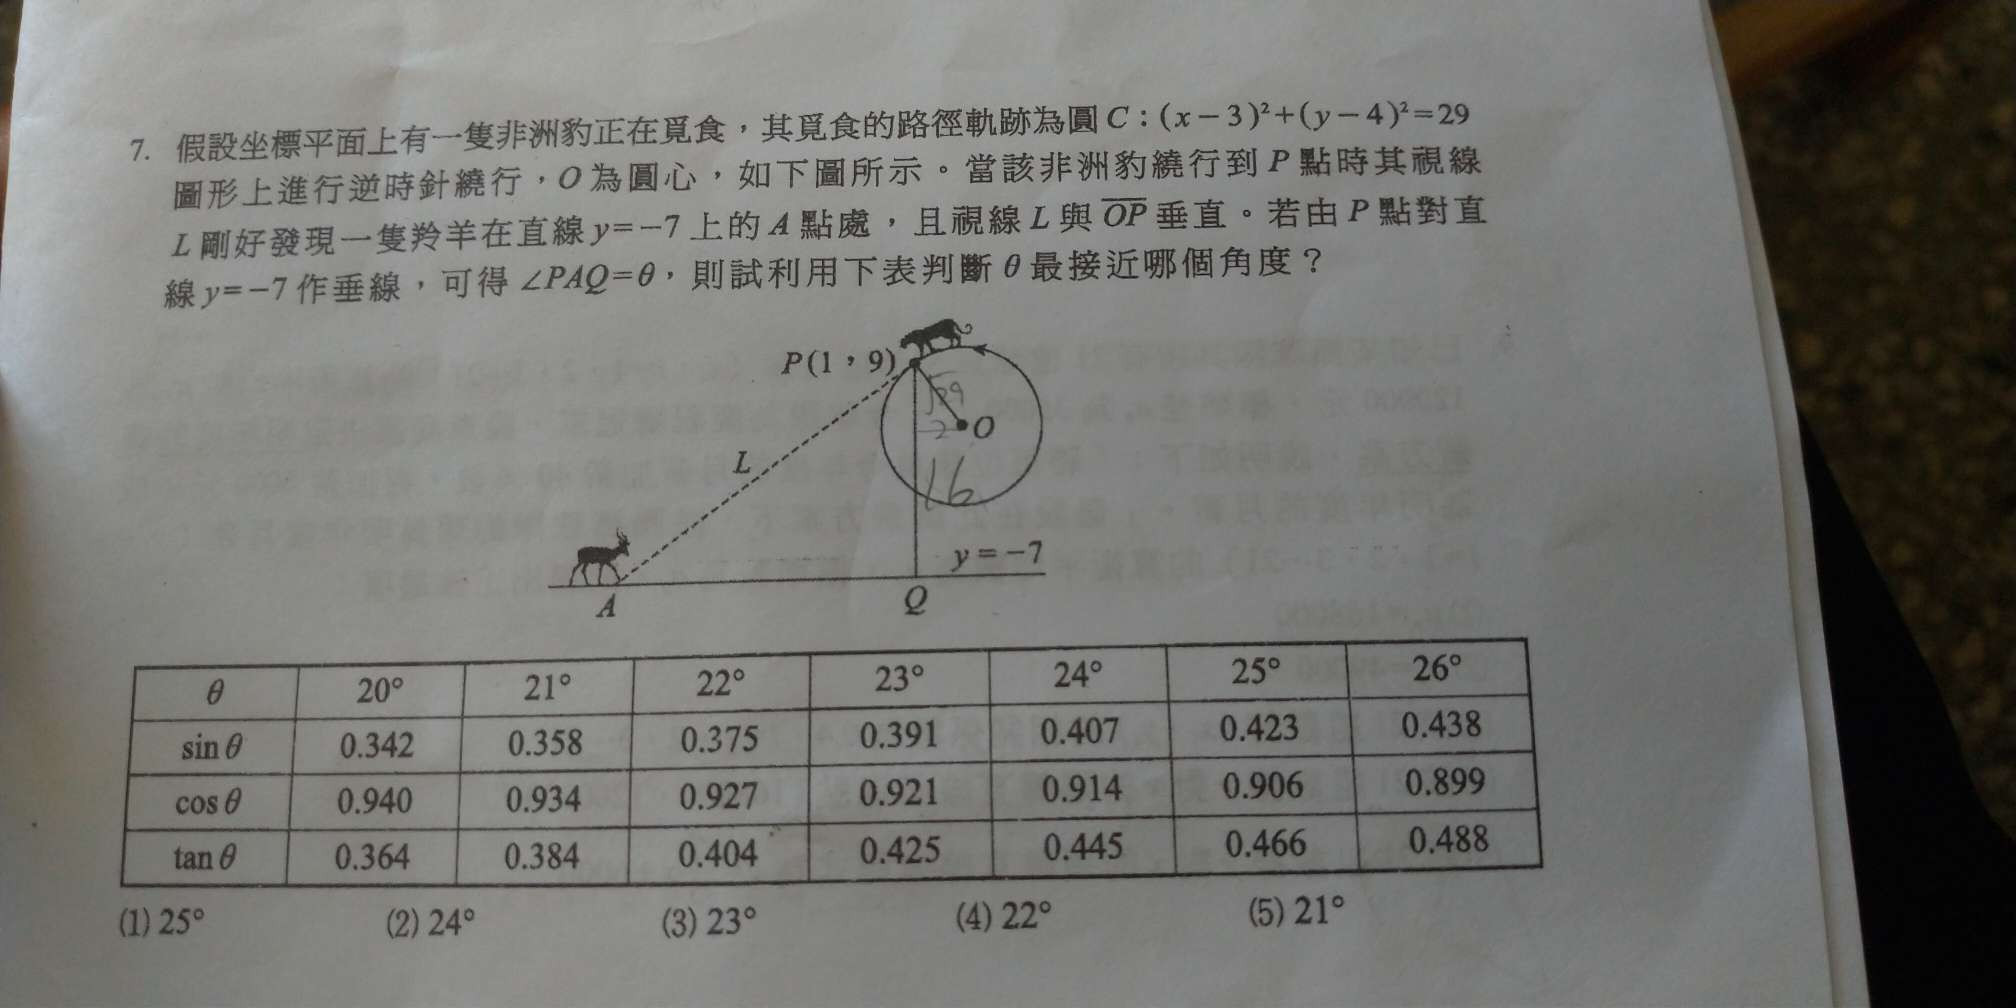 7. 假設坐標平面上有一隻非洲豹正在覓食，其覓食的路徑軌跡為圓 C：(x－3)²+(y－4)²=29
圖形上進行逆時針繞行，O 為圓心，如下圖所示。當該非洲豹繞行到 P 點時其視線
L 剛好發現一隻羚羊在直線 y=－7 上的 A 點處，且視線 L 與 O̅P̅ 垂直。若由 P 點對直
線 y=－7 作垂線，可得 ∠PAQ=θ，則試利用下表判斷 θ 最接近哪個角度？
P(1，9)
√29
2
O
L
16
y=－7
A
Q
θ 20° 21° 22° 23° 24° 25° 26°
sin θ 0.342 0.358 0.375 0.391 0.407 0.423 0.438
cos θ 0.940 0.934 0.927 0.921 0.914 0.906 0.899
tan θ 0.364 0.384 0.404 0.425 0.445 0.466 0.488
(1) 25° (2) 24° (3) 23° (4) 22° (5) 21°